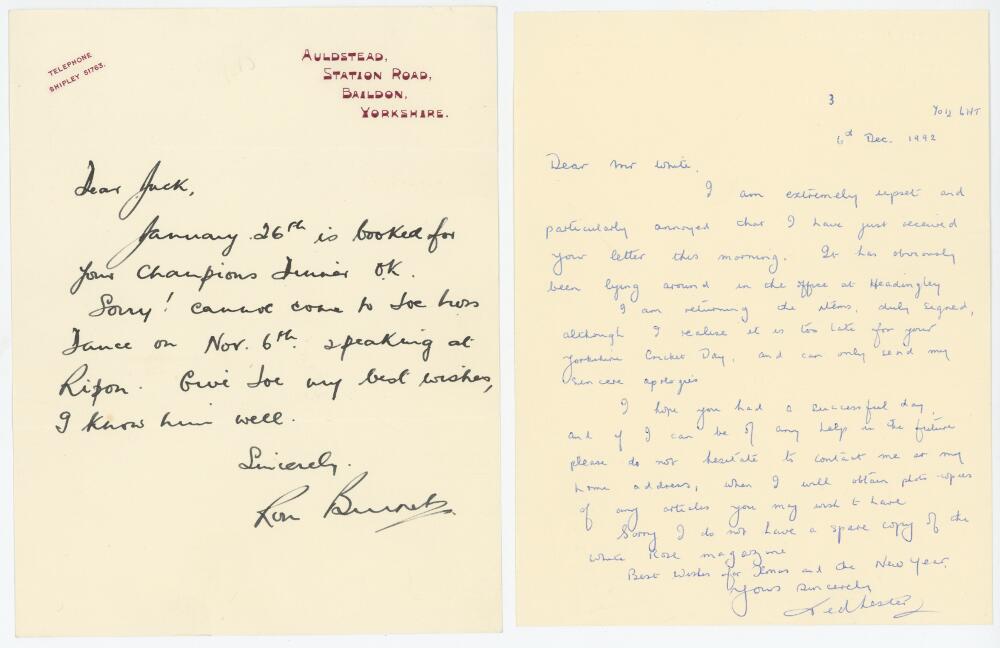 TELEPHONE
SHIPLEY 51763.
AULDSTEAD,
STATION ROAD,
BAILDON,
YORKSHIRE.
Dear Jack,
January 26th is booked for
your Champions Dinner OK.
Sorry! cannot come to Joe
Dance on Nov. 6th. speaking at
Ripon. Give Joe my best wishes,
I know him well.
Sincerely.
Ron Burnet.
3
YO12 6HT
6th Dec. 1992
Dear Mr White,
I am extremely upset and
particularly annoyed that I have just received
your letter this morning. It has obviously
been lying around in the office at Headingley
I am returning the items, duly signed,
although I realise it is too late for your
Yorkshire Cricket Day, and can only send my
sincere apologies
I hope you had a successful day,
and if I can be of any help in the future
please do not hesitate to contact me at my
home address, when I will obtain photo-copies
of any articles you may wish to have
Sorry I do not have a spare copy of the
White Rose magazine
Best Wishes for Xmas and the New Year.
Yours sincerely
Ted Lester